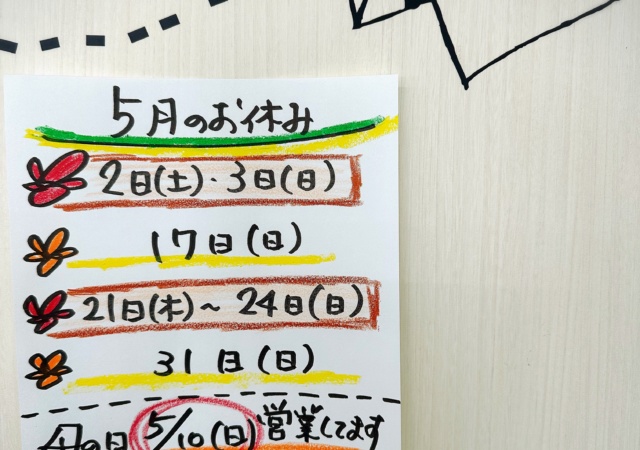 5月のお休み
2日(土)・3日(日)
17日(日)
21日(木)～24日(日)
31日(日)
母の日 5/10(日) 営業してます